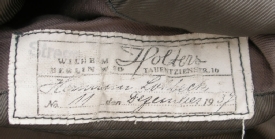 WILHELM Holters
BERLIN W 50 TAUENTZIENSTR. 10
Hermann
No. den Dezember 1937